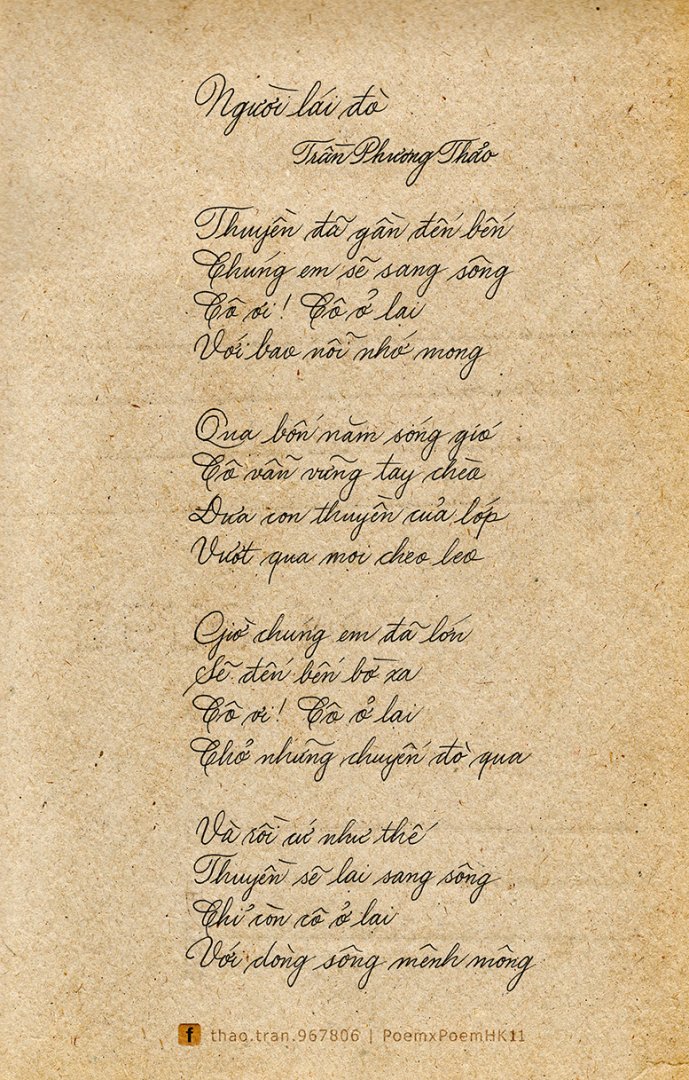 Người lái đò
Trần Phương Thảo
Thuyền đã gần đến bến
Chúng em sẽ sang sông
Cô ơi! Cô ở lại
Với bao nỗi nhớ mong
Qua bốn năm sóng gió
Cô vẫn vững tay chèo
Đưa con thuyền của lớp
Vượt qua mọi cheo leo
Giờ chúng em đã lớn
Sẽ đến bến bờ xa
Cô ơi! Cô ở lại
Chở những chuyến đò qua
Và rồi cứ như thế
Thuyền sẽ lại sang sông
Chỉ còn cô ở lại
Với dòng sông mênh mông
f thao.tran.967806 | PoemxPoemHK11